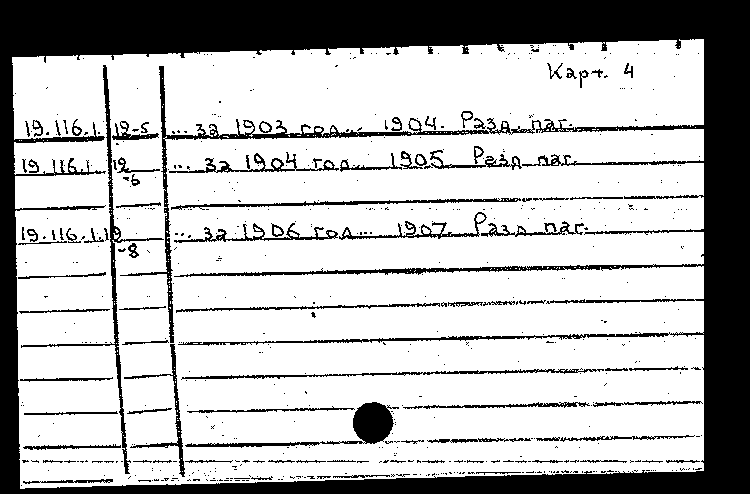 Карт. 4
19.116.1. 19-5 ... за 1903 год... 1904. Разд. паг.
19.116.1. 19-6 ... за 1904 год... 1905. Разд. паг.
19.116.1.19-8 ... за 1906 год... 1907. Разд. паг.